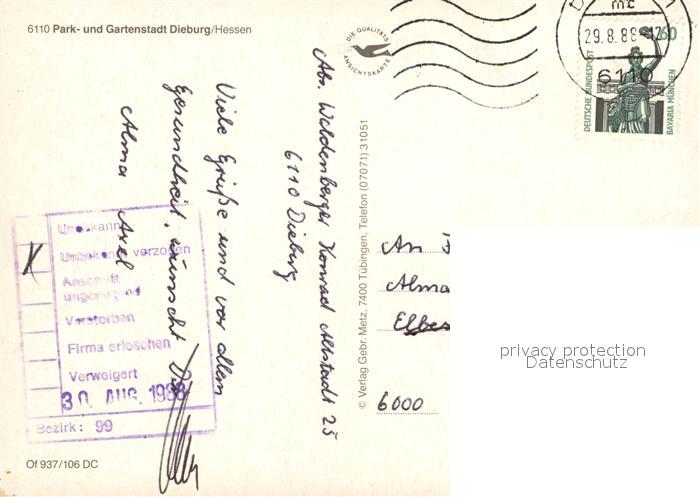 6110 Park- und Gartenstadt Dieburg/Hessen
DIE QUALITÄTS
ANSICHTSKARTE
29.8.88-12
6110
60
DEUTSCHE BUNDESPOST
BAVARIA MÜNCHEN
Abs. Waldenberger Konrad Altstadt 25
6110 Dieburg
Viele Grüße und vor allem
Gesundheit, wünscht
Alma Axel
Unbekannt
Unbekannt verzogen
Anschrift
ungenügend
Verstorben
Firma erloschen
Verweigert
30. AUG. 1988
Bezirk: 99
© Verlag Gebr. Metz, 7400 Tübingen, Telefon (07071) 31051
An
Alma
Elbes
6000
privacy protection
Datenschutz
Of 937/106 DC